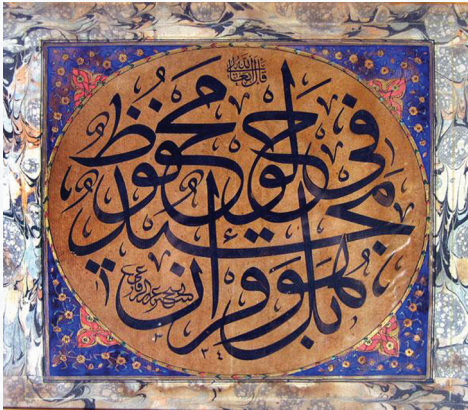 قال الله تعالى
بل هو قرآن
مجيد
في لوح محفوظ